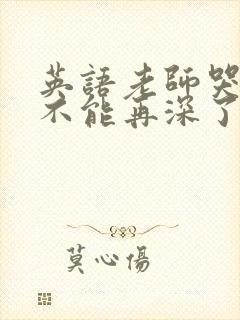 英語老師哭
不能再深了
莫心傷